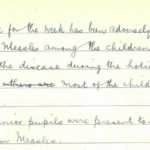 e for the week has been adversely
Measles among the children
the disease during the holi
others are most of the child
nior pupils were present to-
m Measles.